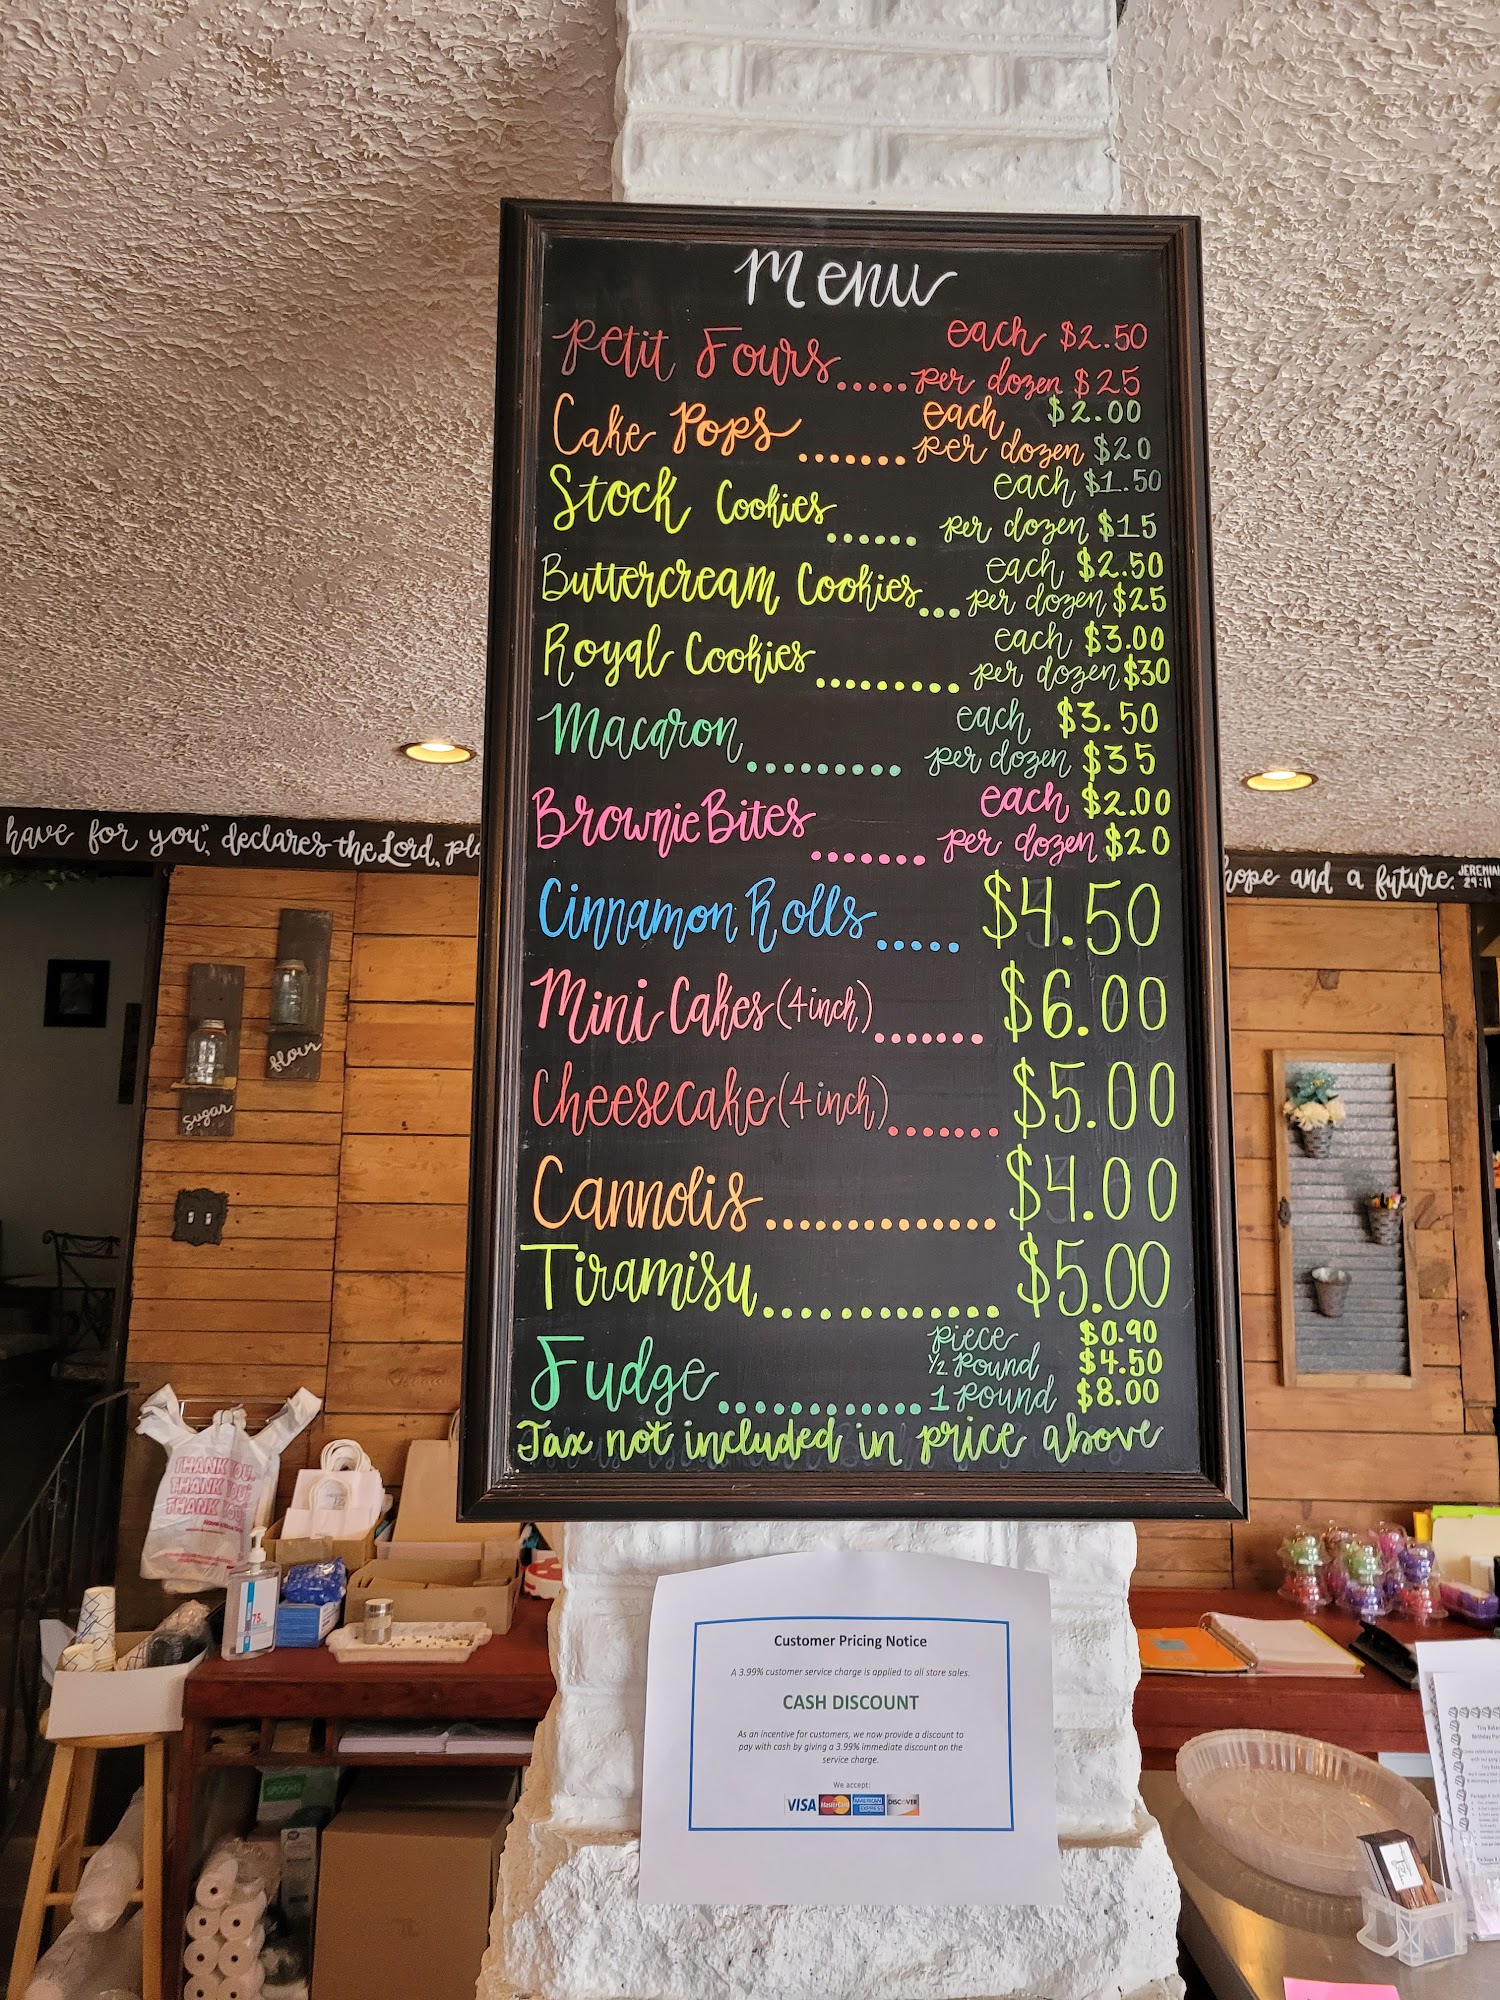 Menu
Petit Fours..... each $2.50
per dozen $25
Cake Pops ....... each $2.00
per dozen $20
Stock Cookies...... each $1.50
per dozen $15
Buttercream Cookies... each $2.50
per dozen $25
Royal Cookies......... each $3.00
per dozen $30
Macaron......... each $3.50
per dozen $35
Brownie Bites ....... each $2.00
per dozen $20
Cinnamon Rolls ..... $4.50
Mini Cakes (4inch)....... $6.00
Cheesecake (4inch)....... $5.00
Cannolis ............. $4.00
Tiramisu............. $5.00
Fudge ............ piece $0.90
1/2 Pound $4.50
1 Pound $8.00
Tax not included in price above
have for you", declares the Lord, pla
hope and a future. JEREMIAH
29:11
flour
Sugar
THANK YOU
THANK YOU
THANK YOU
75
Customer Pricing Notice
A 3.99% customer service charge is applied to all store sales.
CASH DISCOUNT
As an incentive for customers, we now provide a discount to
pay with cash by giving a 3.99% immediate discount on the
service charge.
We accept:
VISA MasterCard AMERICAN EXPRESS DISCOVER
Tiny Baker
Birthday Par